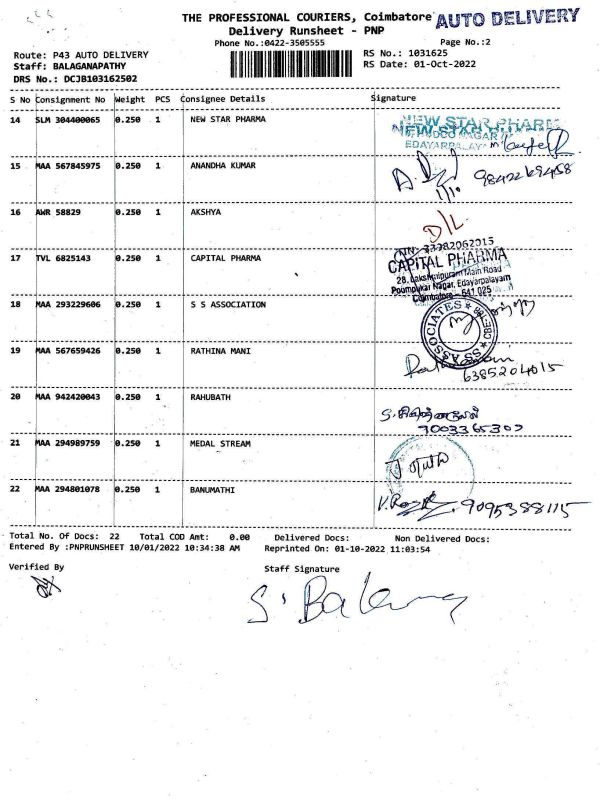 THE PROFESSIONAL COURIERS, Coimbatore AUTO DELIVERY
Delivery Runsheet - PNP
Phone No.:0422-3505555 Page No.:2
Route: P43 AUTO DELIVERY RS No.: 1031625
Staff: BALAGANAPATHY RS Date: 01-Oct-2022
DRS No.: DCJB103162502
S No Consignment No Weight PCS Consignee Details Signature
14 SLM 304400065 0.250 1 NEW STAR PHARMA
NEW STAR PHARM
EDAYARPALAY
15 MAA 567845975 0.250 1 ANANDHA KUMAR
1/10
16 AWR 58829 0.250 1 AKSHYA
D/L
17 TVL 6825143 0.250 1 CAPITAL PHARMA
CAPITAL PHARMA
28, Lakshmipuram Main Road
Poompukar Nagar, Edayarpalayam
Coimbatore - 641 025
18 MAA 293229606 0.250 1 S S ASSOCIATION
SS ASSOCIATES
19 MAA 567659426 0.250 1 RATHINA MANI
6385204015
20 MAA 942420043 0.250 1 RAHUBATH
21 MAA 294989759 0.250 1 MEDAL STREAM
22 MAA 294801078 0.250 1 BANUMATHI
9095388115
Total No. Of Docs: 22 Total COD Amt: 0.00 Delivered Docs: Non Delivered Docs:
Entered By :PNPRUNSHEET 10/01/2022 10:34:38 AM Reprinted On: 01-10-2022 11:03:54
Verified By Staff Signature